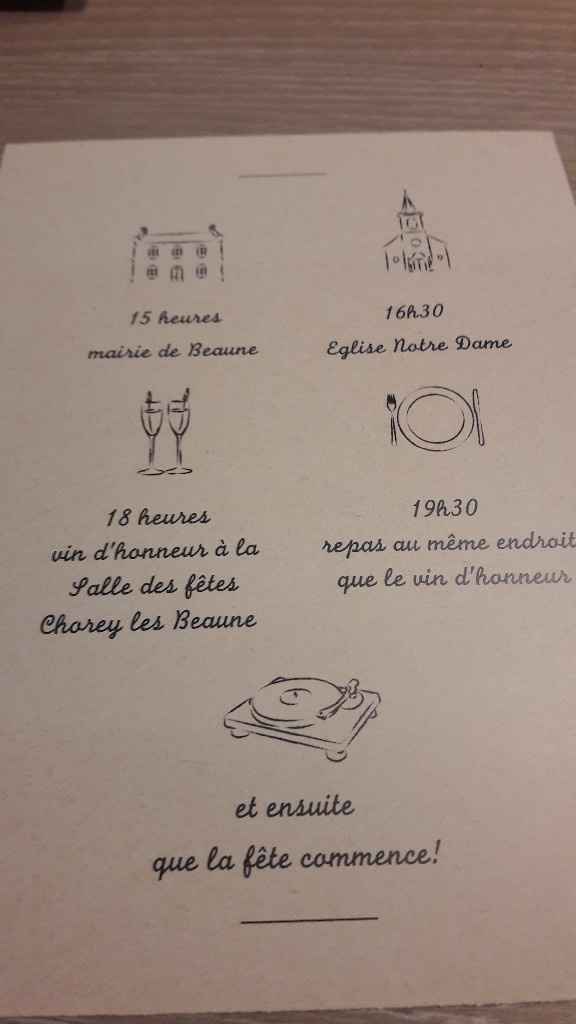 15 heures
mairie de Beaune
16h30
Eglise Notre Dame
18 heures
vin d'honneur à la
Salle des fêtes
Chorey les Beaune
19h30
repas au même endroit
que le vin d'honneur
et ensuite
que la fête commence!